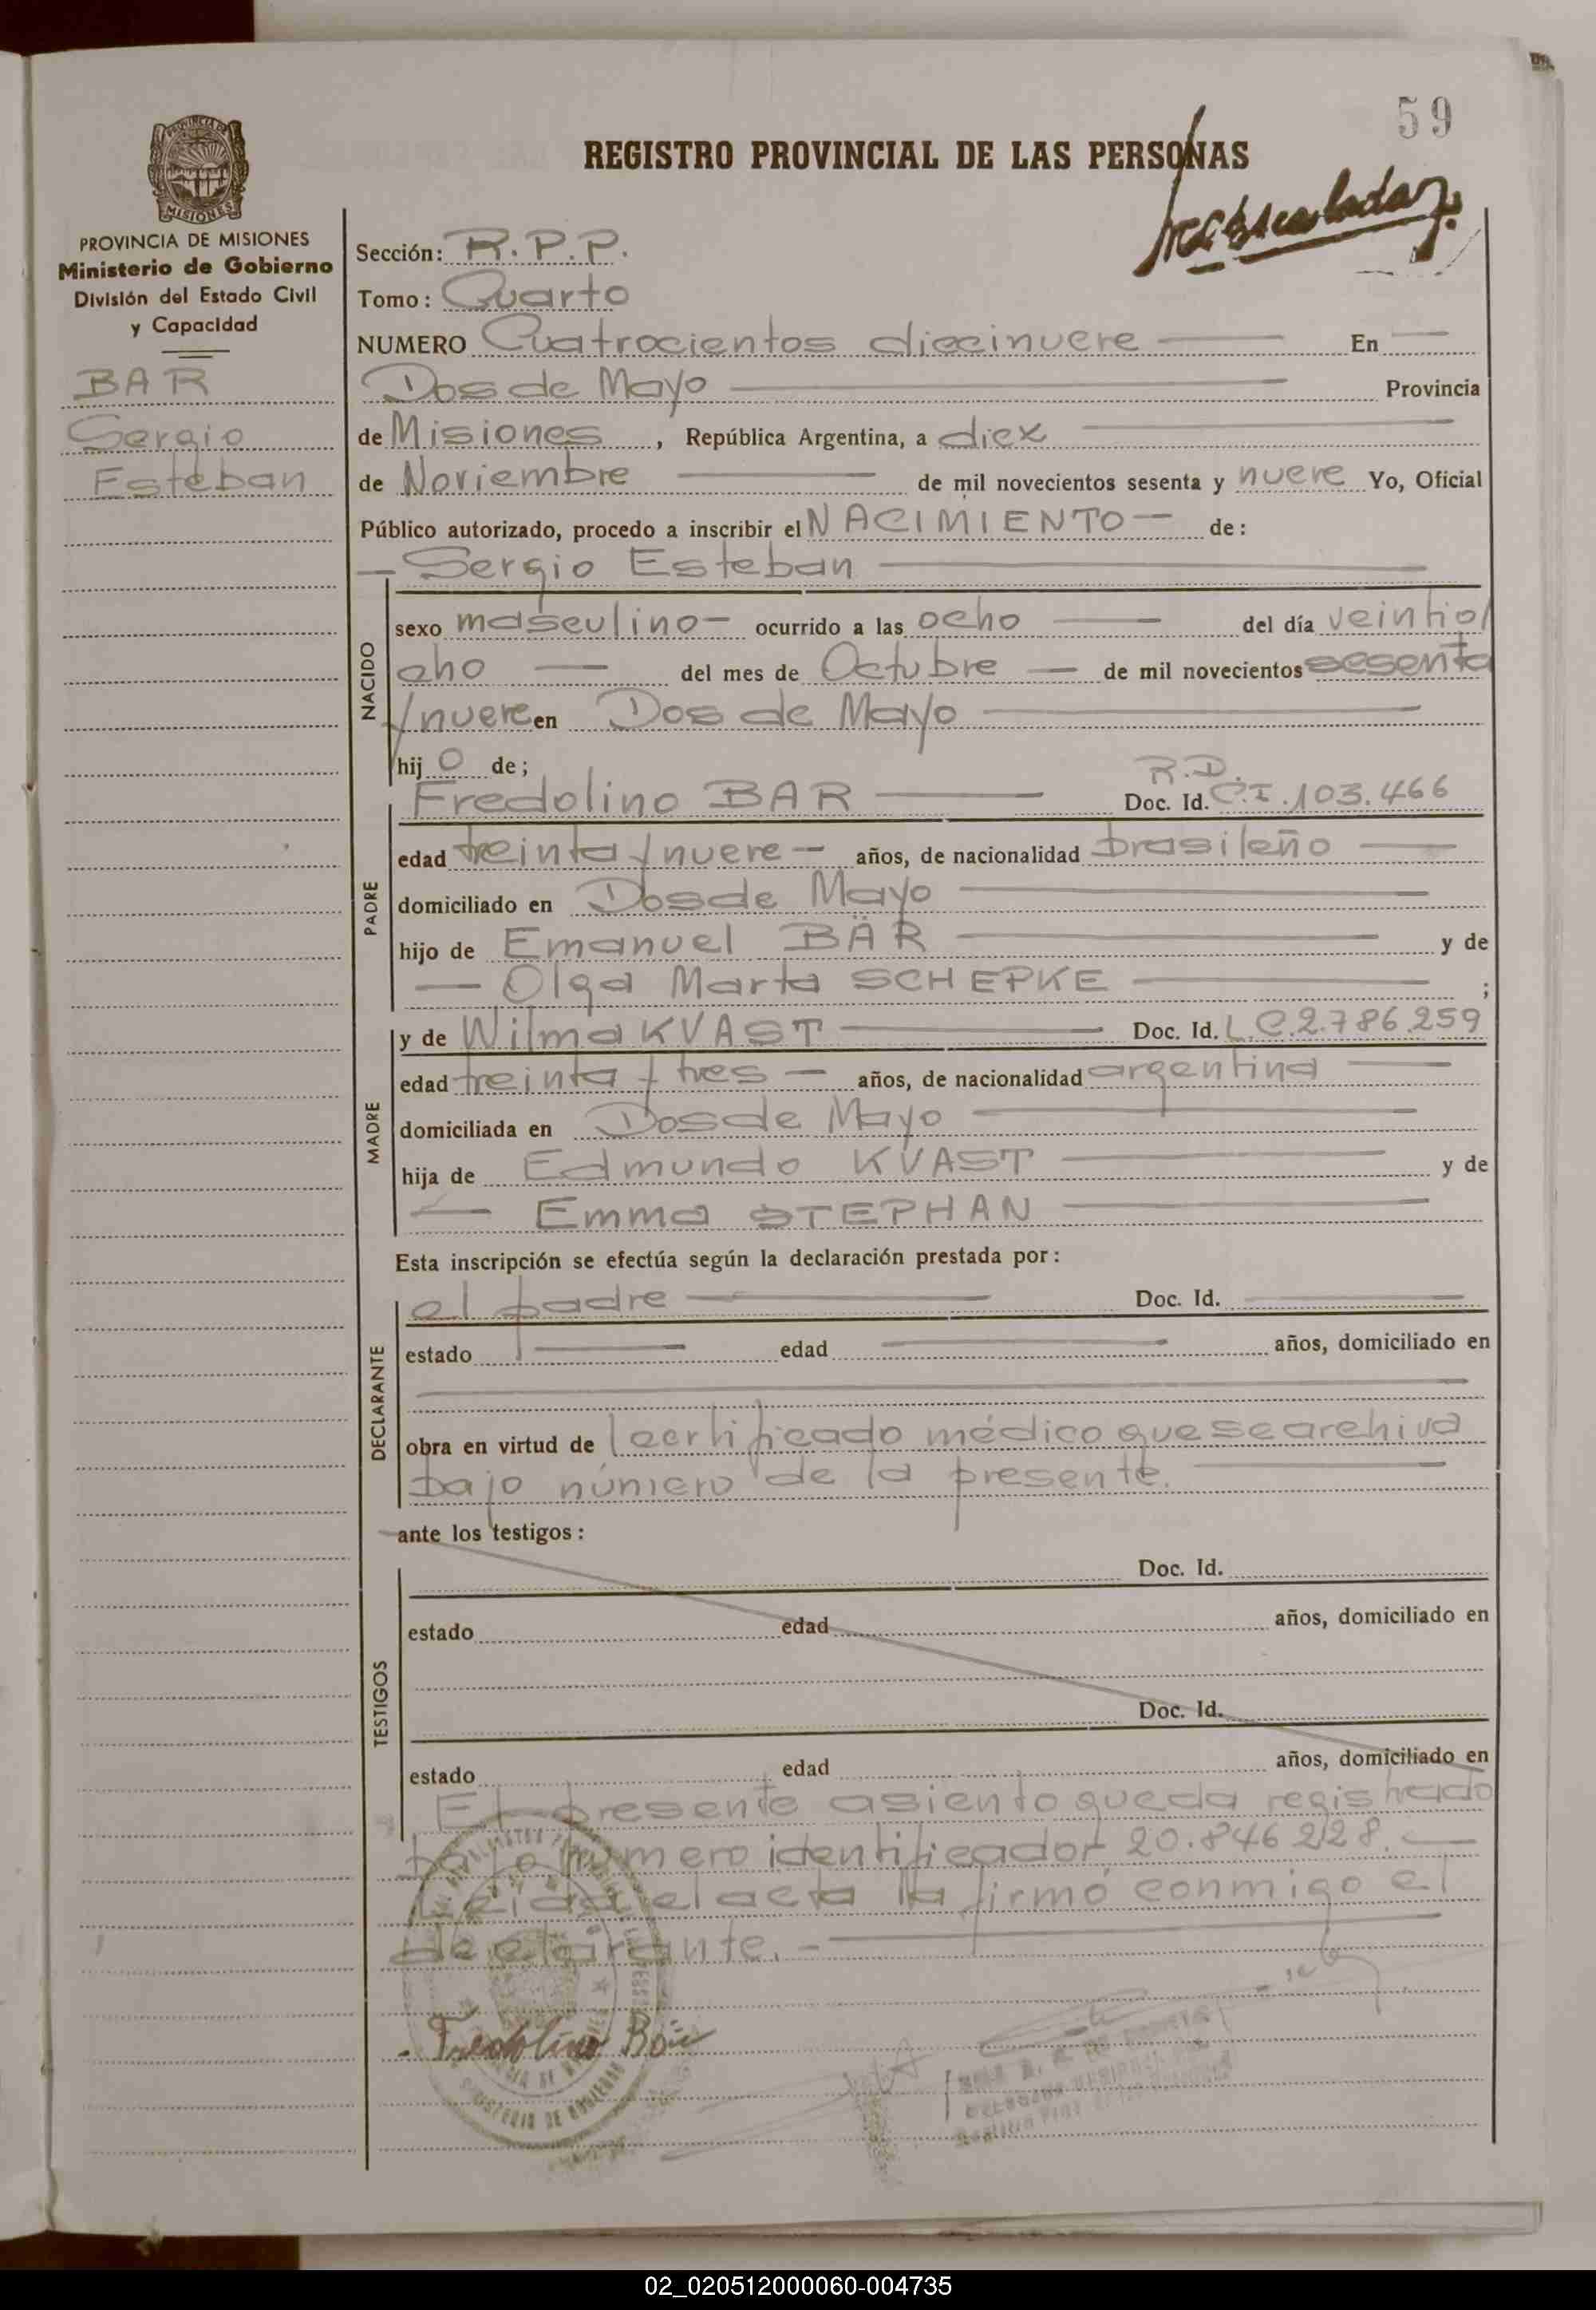 59
REGISTRO PROVINCIAL DE LAS PERSONAS
MISIONES
PROVINCIA DE MISIONES
Ministerio de Gobierno
División del Estado Civil
y Capacidad
BAR
Sergio
Esteban
Sección: R.P.P.
Tomo: Cuarto
NUMERO Cuatrocientos diecinueve En
Dos de Mayo Provincia
de Misiones, República Argentina, a diez
de Noviembre de mil novecientos sesenta y nueve Yo, Oficial
Público autorizado, procedo a inscribir el NACIMIENTO de:
Sergio Esteban
NACIDO
sexo masculino ocurrido a las ocho del día veintio/
cho del mes de Octubre de mil novecientos sesenta
y nueve en Dos de Mayo
hijo de;
PADRE
R.D.
Fredolino BAR Doc. Id. C.I. 103.466
edad treinta y nueve años, de nacionalidad brasileño
domiciliado en Dos de Mayo
hijo de Emanuel BÄR y de
Olga Marta SCHEPKE ;
MADRE
y de Wilma KVAST Doc. Id. L.C. 2.786.259
edad treinta y tres años, de nacionalidad argentina
domiciliada en Dos de Mayo
hija de Edmundo KVAST y de
Emma STEPHAN
Esta inscripción se efectúa según la declaración prestada por:
DECLARANTE
el padre Doc. Id.
estado edad años, domiciliado en
obra en virtud de certificado médico que se archiva
bajo número de la presente.
ante los testigos:
TESTIGOS
Doc. Id.
estado edad años, domiciliado en
Doc. Id.
estado edad años, domiciliado en
El presente asiento queda registrado
bajo número identificador 20.846.228.
Leida el acta la firmó conmigo el
declarante.
Fredolino Bär
02_020512000060-004735